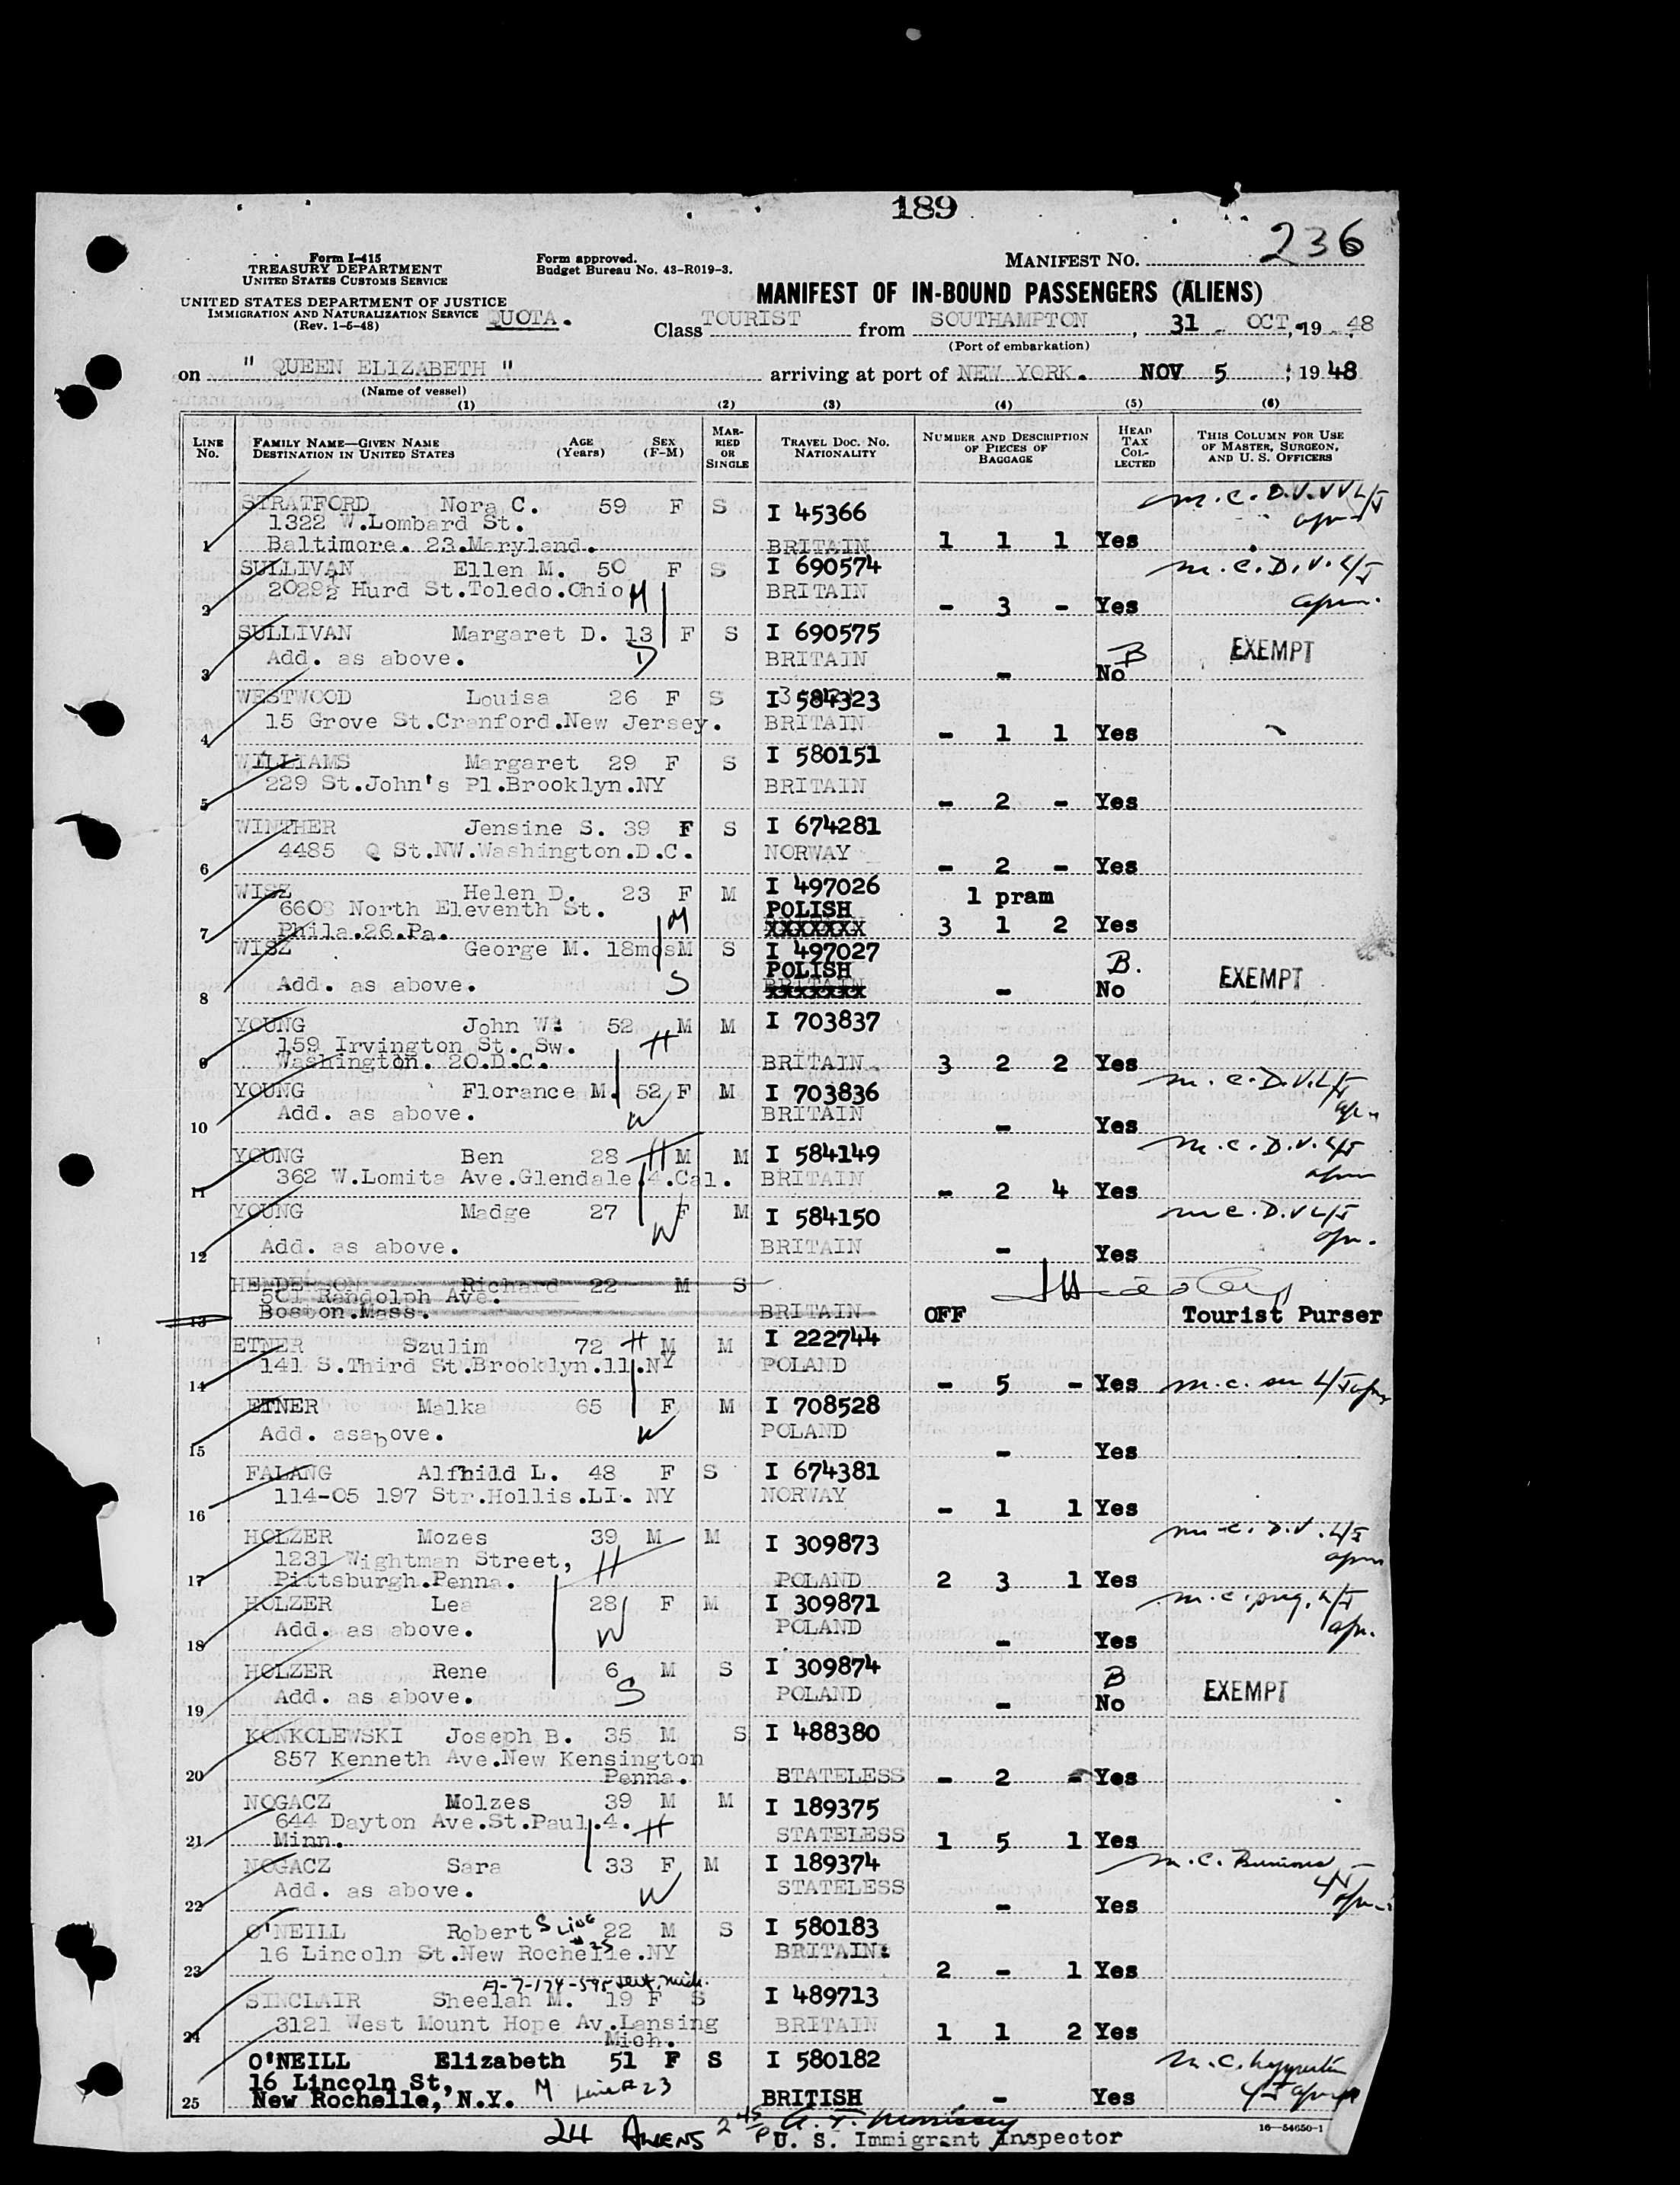 189
236
Form I-415
TREASURY DEPARTMENT
UNITED STATES CUSTOMS SERVICE
Form approved.
Budget Bureau No. 43-R019-3.
MANIFEST NO.
UNITED STATES DEPARTMENT OF JUSTICE
IMMIGRATION AND NATURALIZATION SERVICE
(Rev. 1-6-48)
QUOTA.
MANIFEST OF IN-BOUND PASSENGERS (ALIENS)
Class TOURIST from SOUTHAMPTON, 31 OCT, 19 48
(Port of embarkation)
on " QUEEN ELIZABETH " arriving at port of NEW YORK. NOV 5, 19 48
(Name of vessel)
(1) (2) (3) (4) (5) (6)
LINE NO. FAMILY NAME—GIVEN NAME DESTINATION IN UNITED STATES AGE (Years) SEX (F-M) MARRIED OR SINGLE TRAVEL DOC. NO. NATIONALITY NUMBER AND DESCRIPTION OF PIECES OF BAGGAGE HEAD TAX COLLECTED THIS COLUMN FOR USE OF MASTER, SURGEON, AND U. S. OFFICERS
STRATFORD Nora C. 59 F S I 45366
1322 W.Lombard St.
1 Baltimore. 23.Maryland. BRITAIN 1 1 1 Yes
SULLIVAN Ellen M. 50 F S I 690574 m.c. D.V. L/I
2 2029½ Hurd St.Toledo.Ohio M BRITAIN - 3 - Yes
SULLIVAN Margaret D. 13 F S I 690575 EXEMPT
3 Add. as above. D BRITAIN - B No
WESTWOOD Louisa 26 F S I 584323
4 15 Grove St.Cranford.New Jersey. BRITAIN - 1 1 Yes
WILLIAMS Margaret 29 F S I 580151
5 229 St.John's Pl.Brooklyn.NY BRITAIN - 2 - Yes
WINTHER Jensine S. 39 F S I 674281
6 4485 Q St.NW.Washington.D.C. NORWAY - 2 - Yes
WISZ Helen D. 23 F M I 497026 1 pram
6608 North Eleventh St. POLISH
7 Phila.26.Pa. M XXXXXXX 3 1 2 Yes
WISZ George M. 18mos M S I 497027
POLISH B. EXEMPT
8 Add. as above. S BRITAIN XXXXXXX - No
YOUNG John W. 52 M M I 703837
159 Irvington St. Sw. H
9 Washington. 20.D.C. BRITAIN 3 2 2 Yes
YOUNG Florance M. 52 F M I 703836 m.c. D.V. L/I
10 Add. as above. W BRITAIN - Yes
YOUNG Ben 28 H M M I 584149 m.c. D.V. L/I
11 362 W.Lomita Ave.Glendale.4.Cal. BRITAIN - 2 4 Yes
YOUNG Madge 27 F M I 584150 m.c. D.V L/I
12 Add. as above. W BRITAIN - Yes
HENDERSON Richard 22 M S
501 Randolph Ave.
13 Boston.Mass. BRITAIN OFF Tourist Purser
ETNER Szulim 72 H M M I 222744
14 141 S.Third St.Brooklyn.11.NY POLAND - 5 - Yes
ETNER Malka 65 F M I 708528
15 Add. asabove. W POLAND - Yes
FALANG Alfhild L. 48 F S I 674381
16 114-05 197 Str.Hollis.LI. NY NORWAY - 1 1 Yes
HOLZER Mozes 39 M M I 309873 m.c. D.V. L/I
1231 Wightman Street, H
17 Pittsburgh.Penna. POLAND 2 3 1 Yes
HOLZER Lea 28 F M I 309871 m.c. preg. L/I
18 Add. as above. W POLAND - Yes
HOLZER Rene 6 M S I 309874 B EXEMPT
19 Add. as above. S POLAND - No
KONKOLEWSKI Joseph B. 35 M S I 488380
857 Kenneth Ave.New Kensington
20 Penna. STATELESS - 2 - Yes
NOGACZ Molzes 39 M M I 189375
644 Dayton Ave.St.Paul.4. H
21 Minn. STATELESS 1 5 1 Yes
NOGACZ Sara 33 F M I 189374 m.c.
22 Add. as above. W STATELESS - Yes
O'NEILL Robert S Line # 25 22 M S I 580183
23 16 Lincoln St.New Rochelle.NY BRITAIN 2 - 1 Yes
A-7-174-595 Det. Mich.
SINCLAIR Sheelah M. 19 F S I 489713
3121 West Mount Hope Av.Lansing BRITAIN
24 Mich. 1 1 2 Yes
O'NEILL Elizabeth 51 F S I 580182 m.c.
16 Lincoln St,
25 New Rochelle, N.Y. M Line # 23 BRITISH - Yes
24 ALIENS
U. S. Immigrant Inspector
16—54650-1